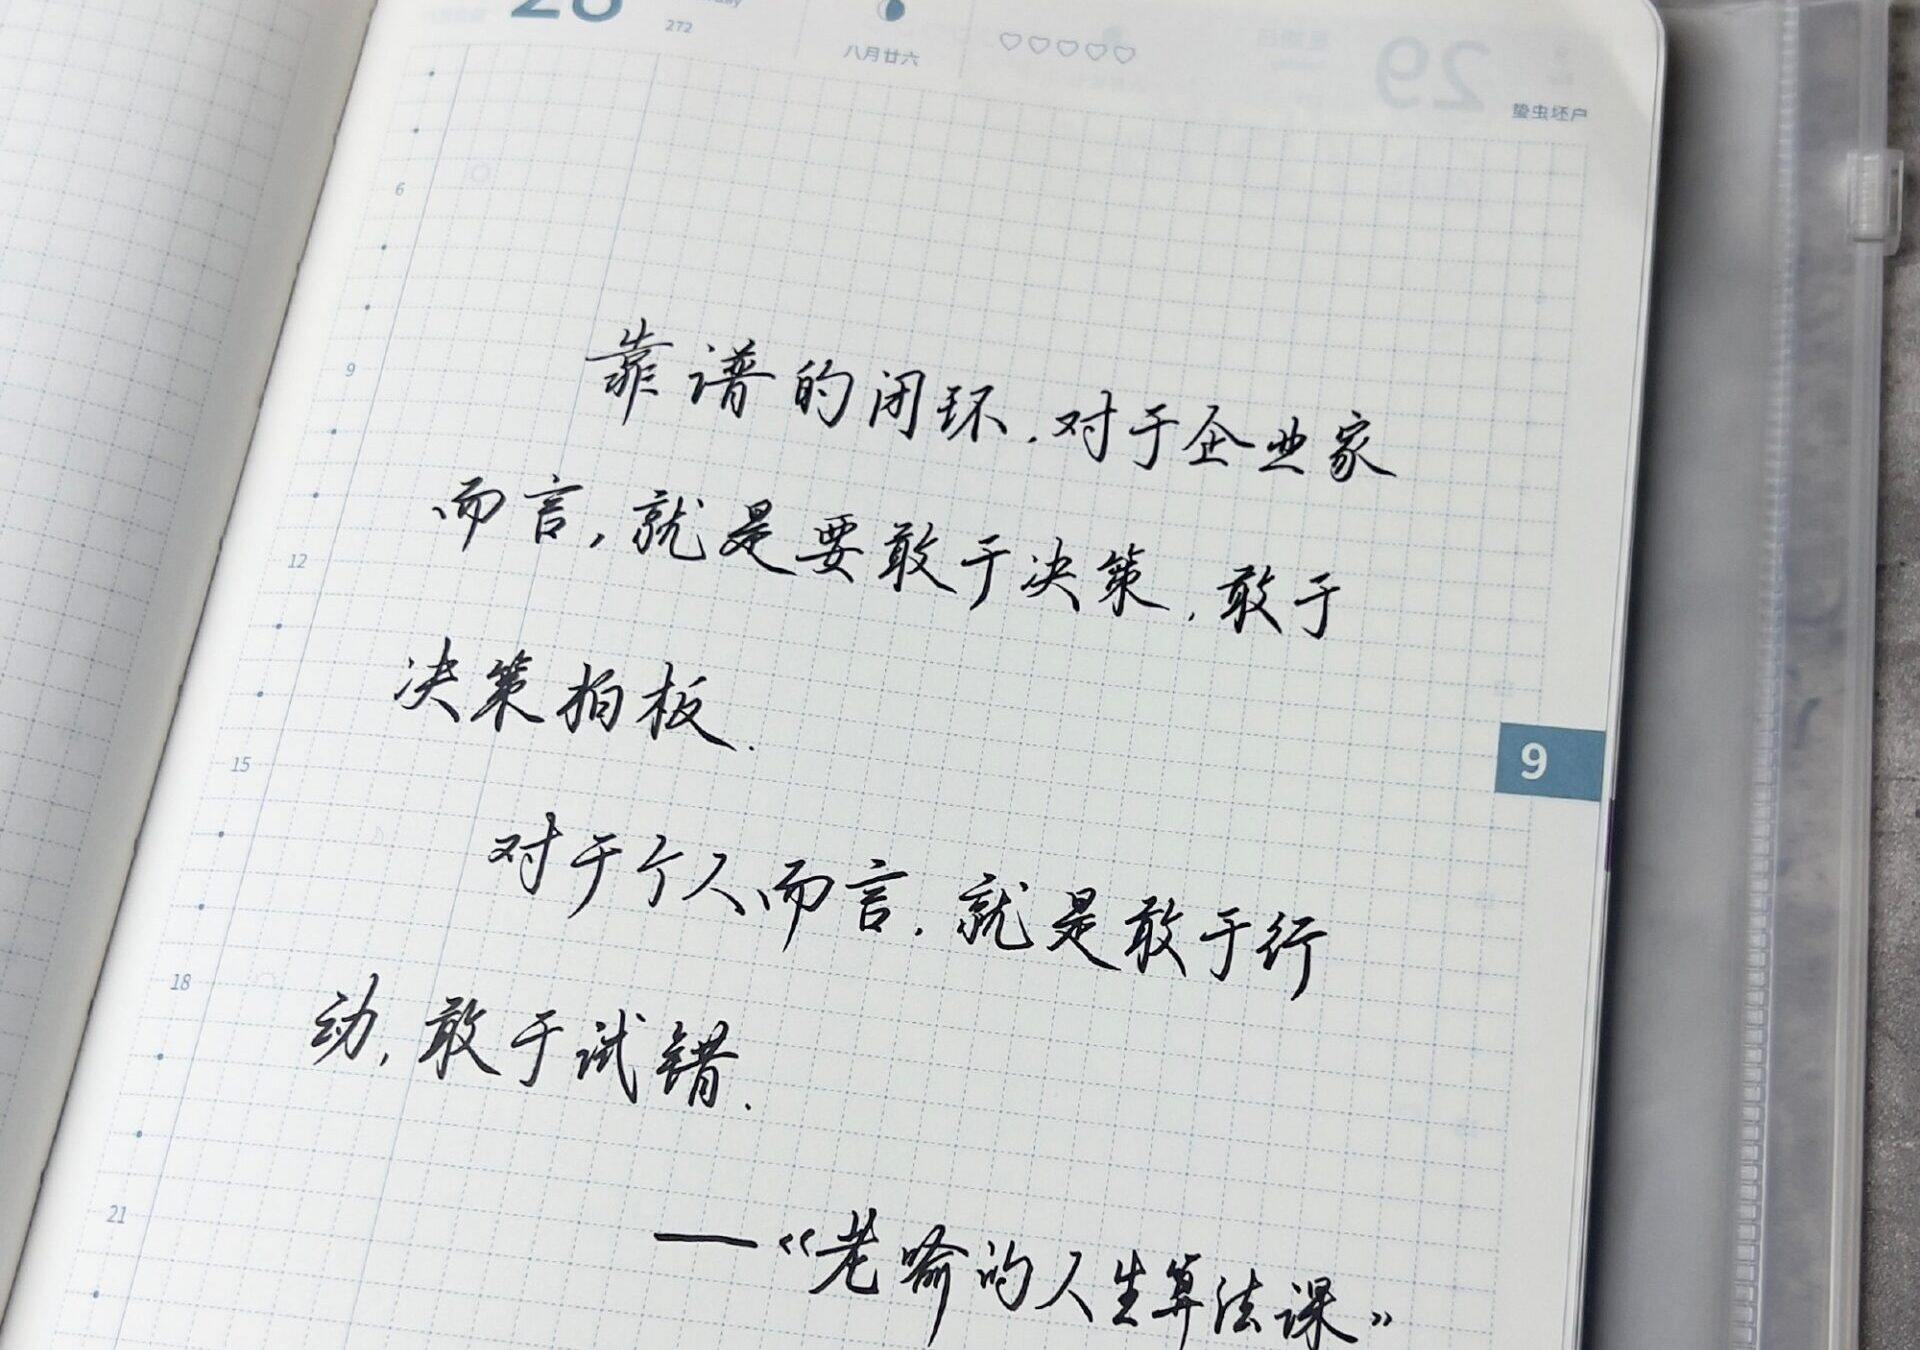 28
272
八月廿六
29
蛰虫坯户
6
9
靠谱的闭环.对于企业家
而言,就是要敢于决策.敢于
12
决策拍板.
15
9
对于个人而言.就是敢于行
18
动,敢于试错.
21
——《老喻的人生算法课》